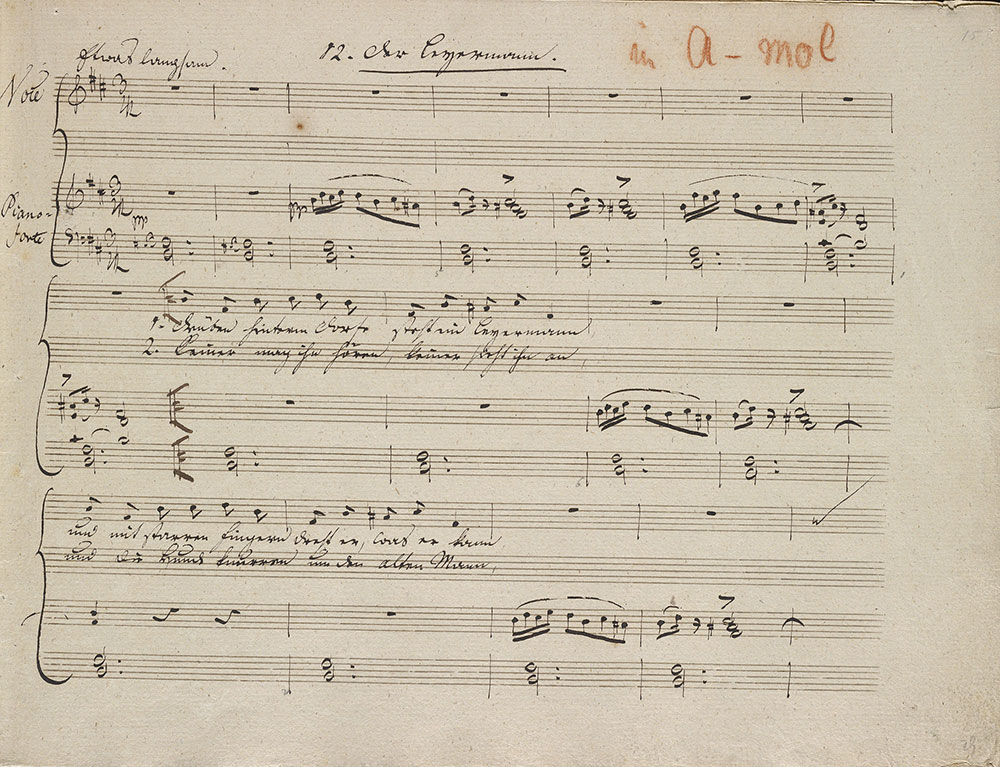 Etwas langsam. 12. Der Leyermann. in A-mol
Voce
Piano-
forte
pp
pp
1. Drüben hinterm Dorfe steht ein Leyermann
2. Keiner mag ihn hören, keiner sieht ihn an,
und mit starren Fingern dreht er, was er kann
und die Hunde knurren um den alten Mann,